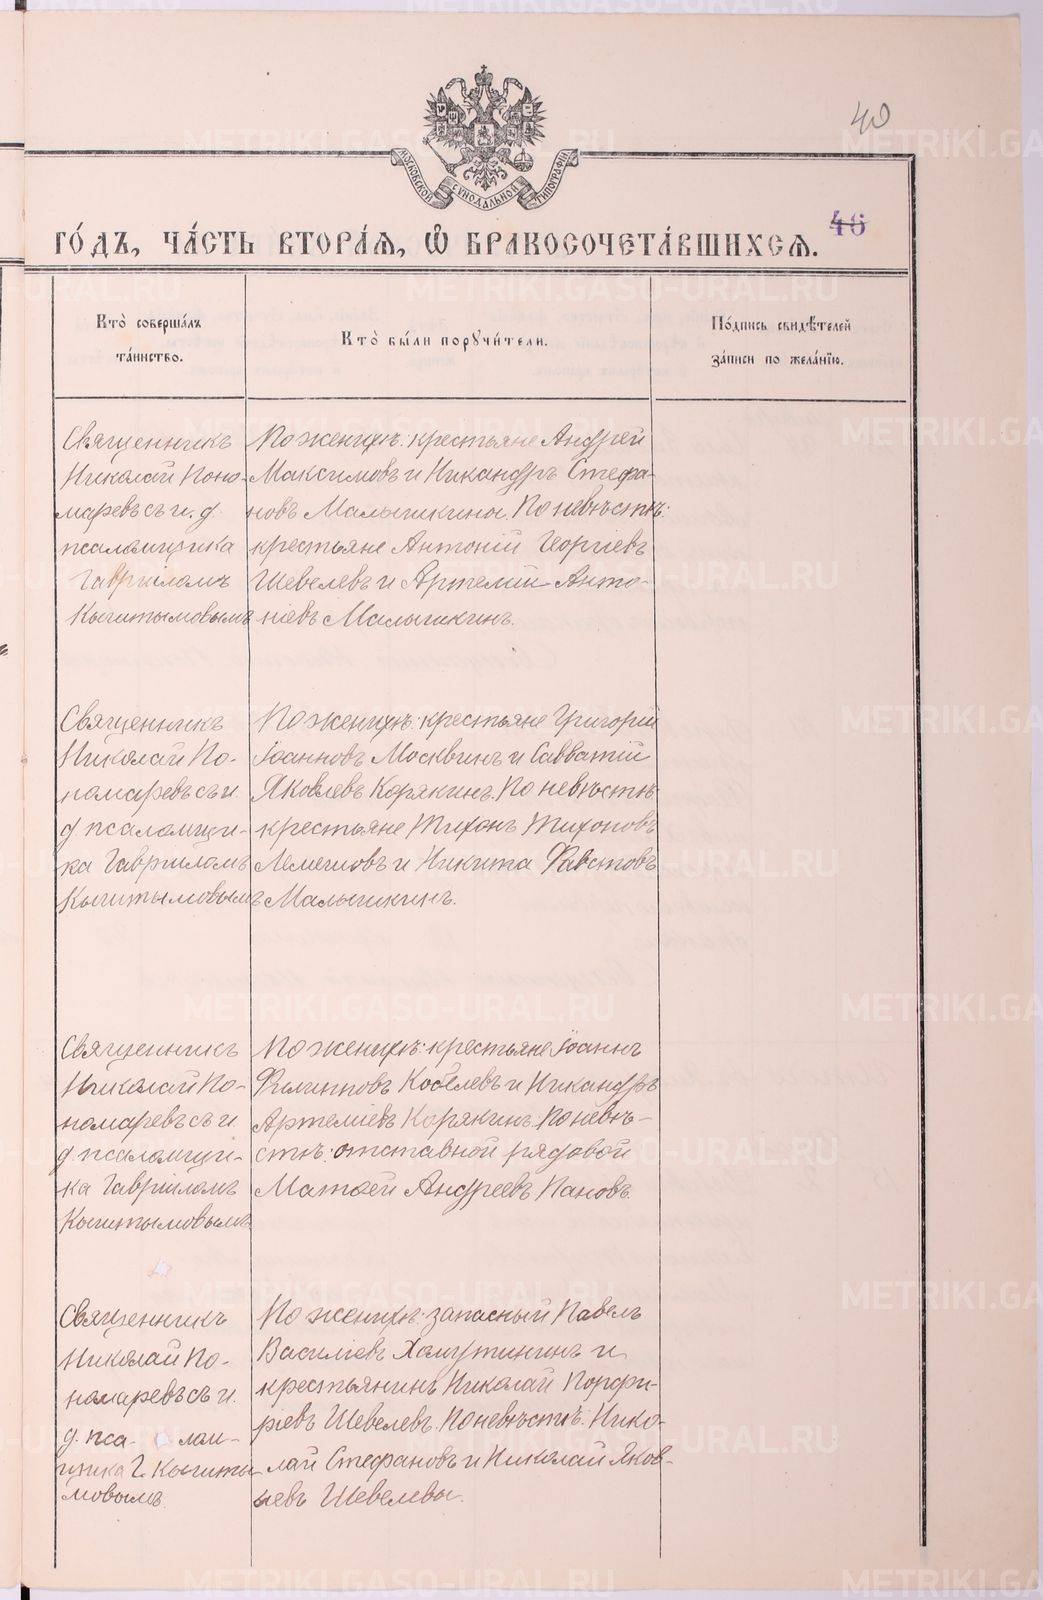 40
МОСКОВСКОЙ СѴНОДАЛЬНОЙ ТИПОГРАФІИ
46
ГО́ДЪ, ЧА́СТЬ ВТОРА́Ѧ, Ѽ БРАКОСОЧЕТА́ВШИХСѦ.
Кто̀ соверша́лъ
та́инство.
Кто̀ бы́ли порꙋчи́тели.
По́дпись свидѣ́телей
за́писи по жела́нїю.
Священникъ
Николай Поно-
маревъ съ и. д.
псаломщика
Гавріиломъ
Кыштымовымъ
По женихѣ: крестьяне Андрей
Максимовъ и Никандръ Стефа-
новъ Малышкины. По невѣстѣ:
крестьяне Антоній Георгіевъ
Шевелевъ и Артемій Анто-
ніевъ Малышкинъ.
Священникъ
Николай По-
номаревъ съ и
д псаломщи-
ка Гавріиломъ
Кыштымовымъ
По женихѣ: крестьяне Григорій
Іоанновъ Москвинъ и Савватій
Яковлевъ Корякинъ. По невѣстѣ
крестьяне Тихонъ Тихоновъ
Лемешовъ и Никита Фавстовъ
Малышкинъ.
Священникъ
Николай По-
номаревъ съ и
д. псаломщи-
ка Гавріиломъ
Кыштымовымъ
По женихѣ: крестьяне Іоаннъ
Филипповъ Кобелевъ и Никандръ
Артеміевъ Корякинъ. По невѣ-
стѣ: отставной рядовой
Матѳей Андреевъ Пановъ.
Священникъ
Николай По-
номаревъ съ и.
д. пса- лом-
щика Г. Кышты-
мовымъ
По женихѣ: запасный Павелъ
Василіевъ Хомутининъ и
крестьянинъ Николай Порфи-
ріевъ Шевелевъ. По невѣстѣ: Нико-
лай Стефановъ и Николай Яков-
левъ Шевелевы.
METRIKI.GASO-URAL.RU